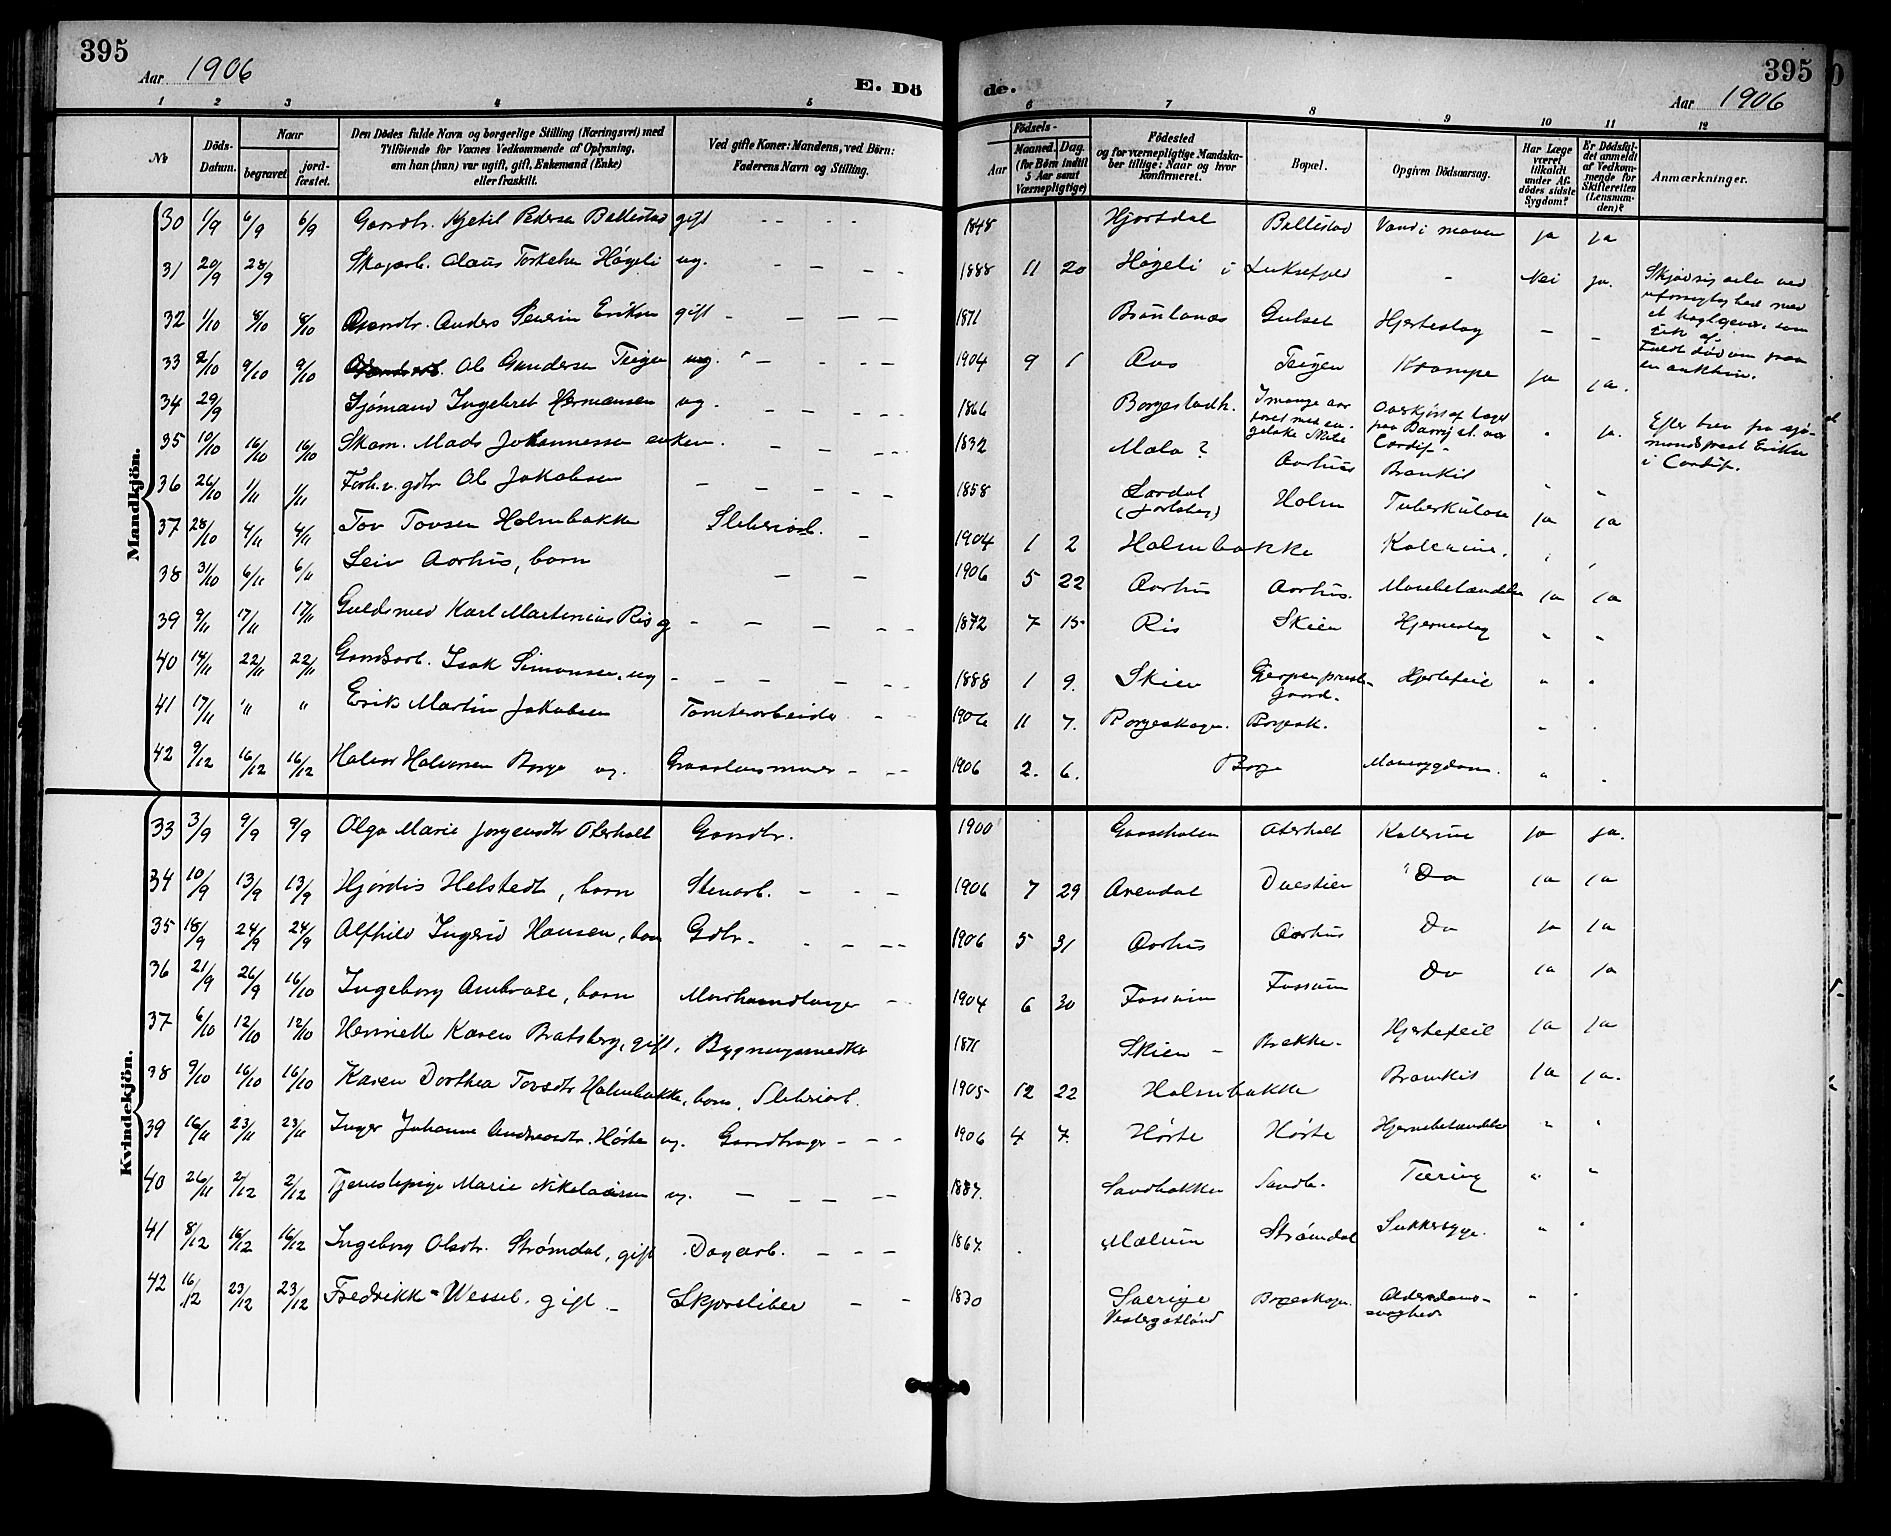 395
Aar 1906
E. Dö
de.
395
Aar 1906
1 2 3 4 5 6 7 8 9 10 11 12
No
Döds-Datum.
Naar
begravet
jord-fæstet.
Den Dödes fulde Navn og borgerlige Stilling (Næringsvei) med
Tilföiende for Voxnes Vedkommende af Oplysning,
om han (hun) var ugift, gift, Enkemand (Enke)
eller fraskilt.
Ved gifte Koner: Mandens, ved Börn:
Faderens Navn og Stilling.
Födsels-
Aar
Maaned. Dag.
(for Börn indtil
5 Aar samt
Værnepligtige)
Födested
og for værnepligtige Mandska-
ber tillige: Naar og hvor
konfirmeret.
Bopæl.
Opgiven Dödsaarsag.
Har Læge
været
tilkaldt
under Af-
dödes sidste
Sygdom?
Er Dödsfal-
det anmeldt
af Vedkom-
mende for
Skifteretten
(Lensman-
den)?
Anmærkninger.
Mandkjön.
30 1/9 6/9 6/9 Gaardbr. Kjetil Pedersen Ballestad gift 1848 Hjartdal Ballestad Vand i maven ja ja
31 20/9 28/9 Skogarb. Olaus Torkelsen Høgeli ug. 1888 11 20 Høgeli i Luksefjeld - Nei ja.
32 1/10 8/10 8/10 Gaardbr. Anders Severin Eriksen gift 1871 Brånlanæs Gulset Hjerteslag - -
33 2/10 9/10 9/10 Ole Gundersen Teigen ug. 1904 9 1 Aas Teigen Krampe ja ja.
34 29/9 Sjømand Ingebret Hermansen ug. 1866 Borgestadh. I mange aar faret med engelske Skibe Overkjørt af toget paa Barry st. nær Cardif " ja.
35 10/10 16/10 16/10 Skom. Mads Johannessen enkem. 1832 Mæla? Aarhus Bronkit " "
36 26/10 1/11 1/11 Forh.v. gdbr Ole Jakobsen 1858 Lardal (Jarlsberg) Holm Tuberkulose ja ja
37 28/10 4/11 4/11 Tov Tovsen Holmbakke Sliberiarb. 1904 1 2 Holmbakke Kolerine. " "
38 31/10 6/11 6/11 Leiv Aarhus, barn 1906 5 22 Aarhus Aarhus. Mavebetændelse ja ja
39 9/11 17/11 17/11 Guldsmed Karl Martinius Ris g 1872 7 15 Ris Skien Hjerneslag " "
40 14/11 22/11 22/11 Gaardsarb. Isak Simonsen, ug 1888 1 9. Skien Gjerpen prestegaard. Hjertefeil " "
41 17/11 " " Erik Martin Jakobsen Tomtearbeider 1906 11 7. Borgeskogen. Borgesk. " "
42 9/12 16/12 16/12 Halvor Halvorsen Borge ug. 1906 2. 6. Borge Mavesygdom. " "
Skjød sig selv ved
uforsigtighed med
et haglgevær som
gik af.
Faldt død om paa
en auktion.
Efter brev fra sjø-
mandsprest Eriksen
i Cardif.
Kvindekjön.
33 3/9 9/9 9/9 Olga Marie Jørgensdtr Aterholt Gaardbr. 1900 Gaasholen Aterholt Kolerine ja ja.
34 10/9 13/9 13/9 Hjørdis Helstedt, barn Stenarb. 1906 7 29 Arendal Duestien Do ja ja
35 18/9 24/9 24/9 Alfhild Ingerid Hansen, barn Gdbr. 1906 5 31 Aarhus Aarhus Do ja ja
36 21/9 26/9 16/10 Ingeborg Ambrose, barn Murhaandlanger 1904 6 30 Fossum Fossum Do ja ja
37 6/10 12/10 12/10 Henriette Karen Bratsberg, gift. Bygningssnedker 1871 Skien - Brekke. Hjertefeil ja ja
38 9/10 16/10 16/10 Karen Dorthea Tovsdtr Holmbakke, barn, Sliberiarb. 1905 12 22 Holmbakke Bronkit ja ja.
39 16/11 23/11 23/11 Inger Johanne Andreasdtr. Hørte ug. Gaardbruger 1906 4 7. Hørte Hørte Hjernebetændelse " "
40 26/11 2/12 2/12 Tjenestepige Marie Nikolaisen ug. 1887. Sandbakken Sandb. Tæring " "
41 8/12 16/12 16/12 Ingeborg Olsdtr. Strømdal, gift Dagarb. 1867. Mælum Strømdal Sukkersyge. " "
42 16/12 23/12 23/12 Fredrikke Wessel. gift Skjærsliber 1830 Sverige Vestergotland Borgeskogen. Alderdoms-svaghed " "